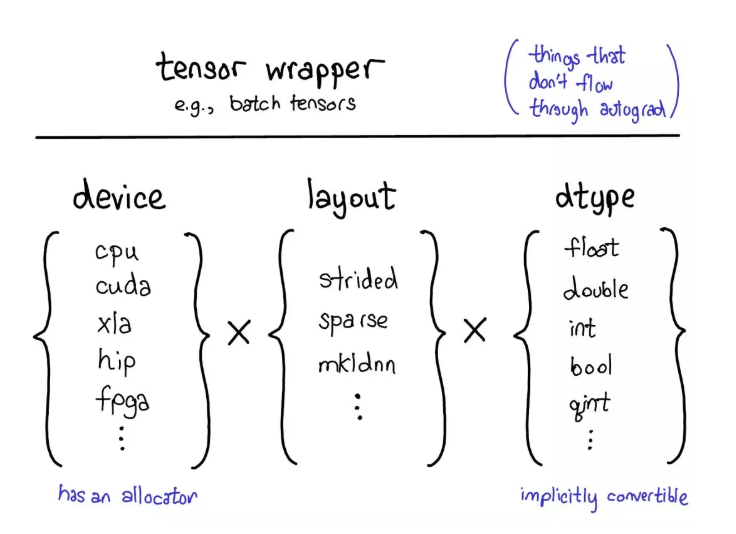 tensor wrapper
e.g., batch tensors
things that
don't flow
through autograd
device
cpu
cuda
xla
hip
fpga
⋮
has an allocator
×
layout
strided
sparse
mkldnn
⋮
×
dtype
float
double
int
bool
qint
⋮
implicitly convertible